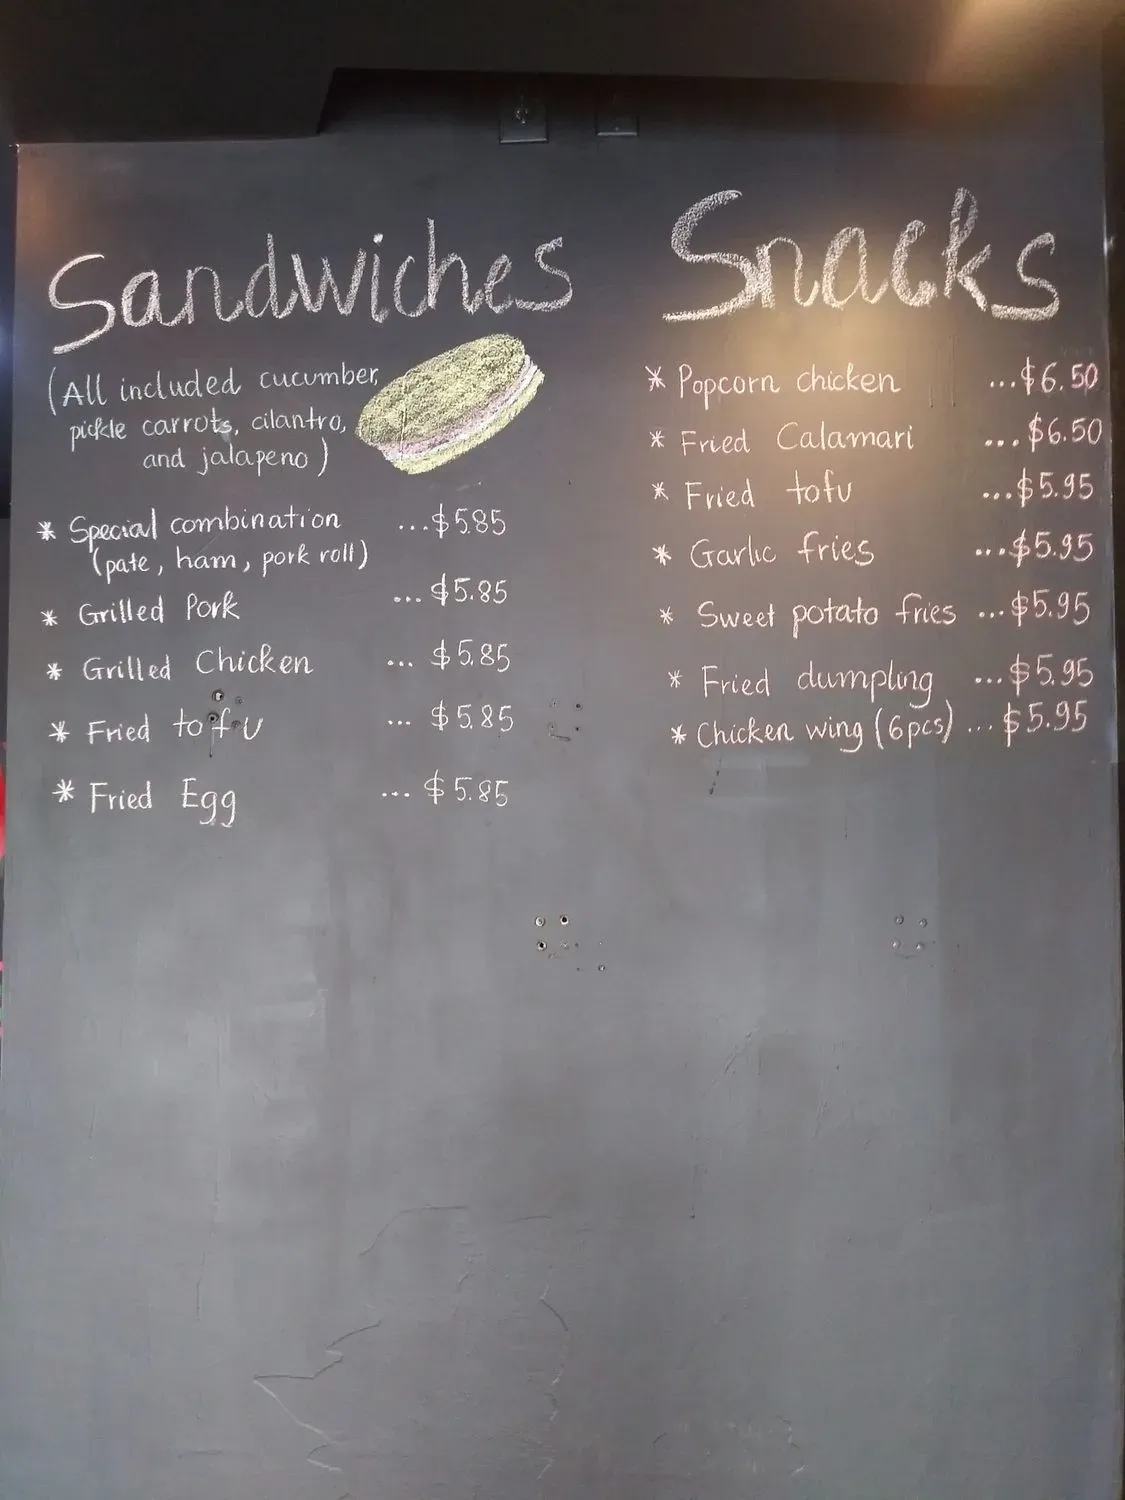 Sandwiches
(All included cucumber,
pickle carrots, cilantro,
and jalapeno)
* Special combination ...$5.85
(pate, ham, pork roll)
* Grilled Pork ...$5.85
* Grilled Chicken ...$5.85
* Fried tofu ...$5.85
* Fried Egg ...$5.85
Snacks
* Popcorn chicken ...$6.50
* Fried Calamari ...$6.50
* Fried tofu ...$5.95
* Garlic fries ...$5.95
* Sweet potato fries ...$5.95
* Fried dumpling ...$5.95
* Chicken wing (6pcs) ...$5.95